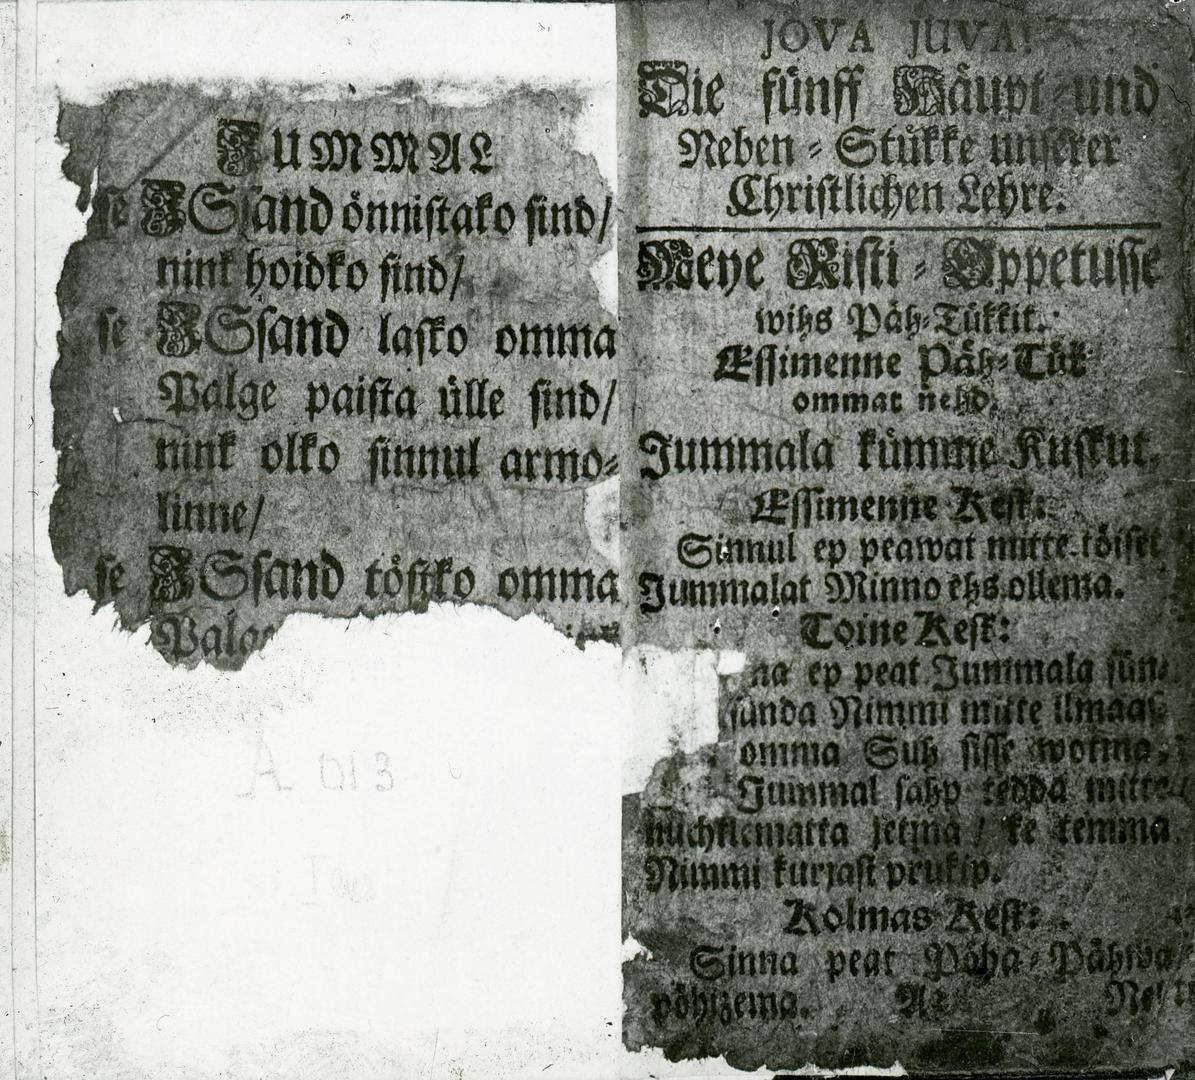 JUMMAL
se JSsand önnistako sind/
nink hoidko sind/
se JSsand lasko omma
Palge paista ülle sind/
nink olko sinnul armo-
linne/
se JSsand töstko omma
Palge
A 013
JOVA JUVA!
Die fünff Häupt-und
Neben-Stükke unserer
Christlichen Lehre.
Meye Risti-Oppetusse
wihs Päh-Tükkit.
Essimenne Päh-Tük
ommat nehd.
Jummala kümme Kuskut.
Essimenne Kesk:
Sinnul ep peawat mitte töiset
Jummalat Minno ehs ollema.
Toine Kesk:
na ep peat Jummala sün-
sunda Nimmi mitte ilmaas-
omma Suh sisse wotma,
Jummal sahp tedda mitte
nuchklematta jetma / ke temma
Nimmi kurjast prukip.
Kolmas Kesk:
Sinna peat Pöha-Pähwa
pöhizema. A2